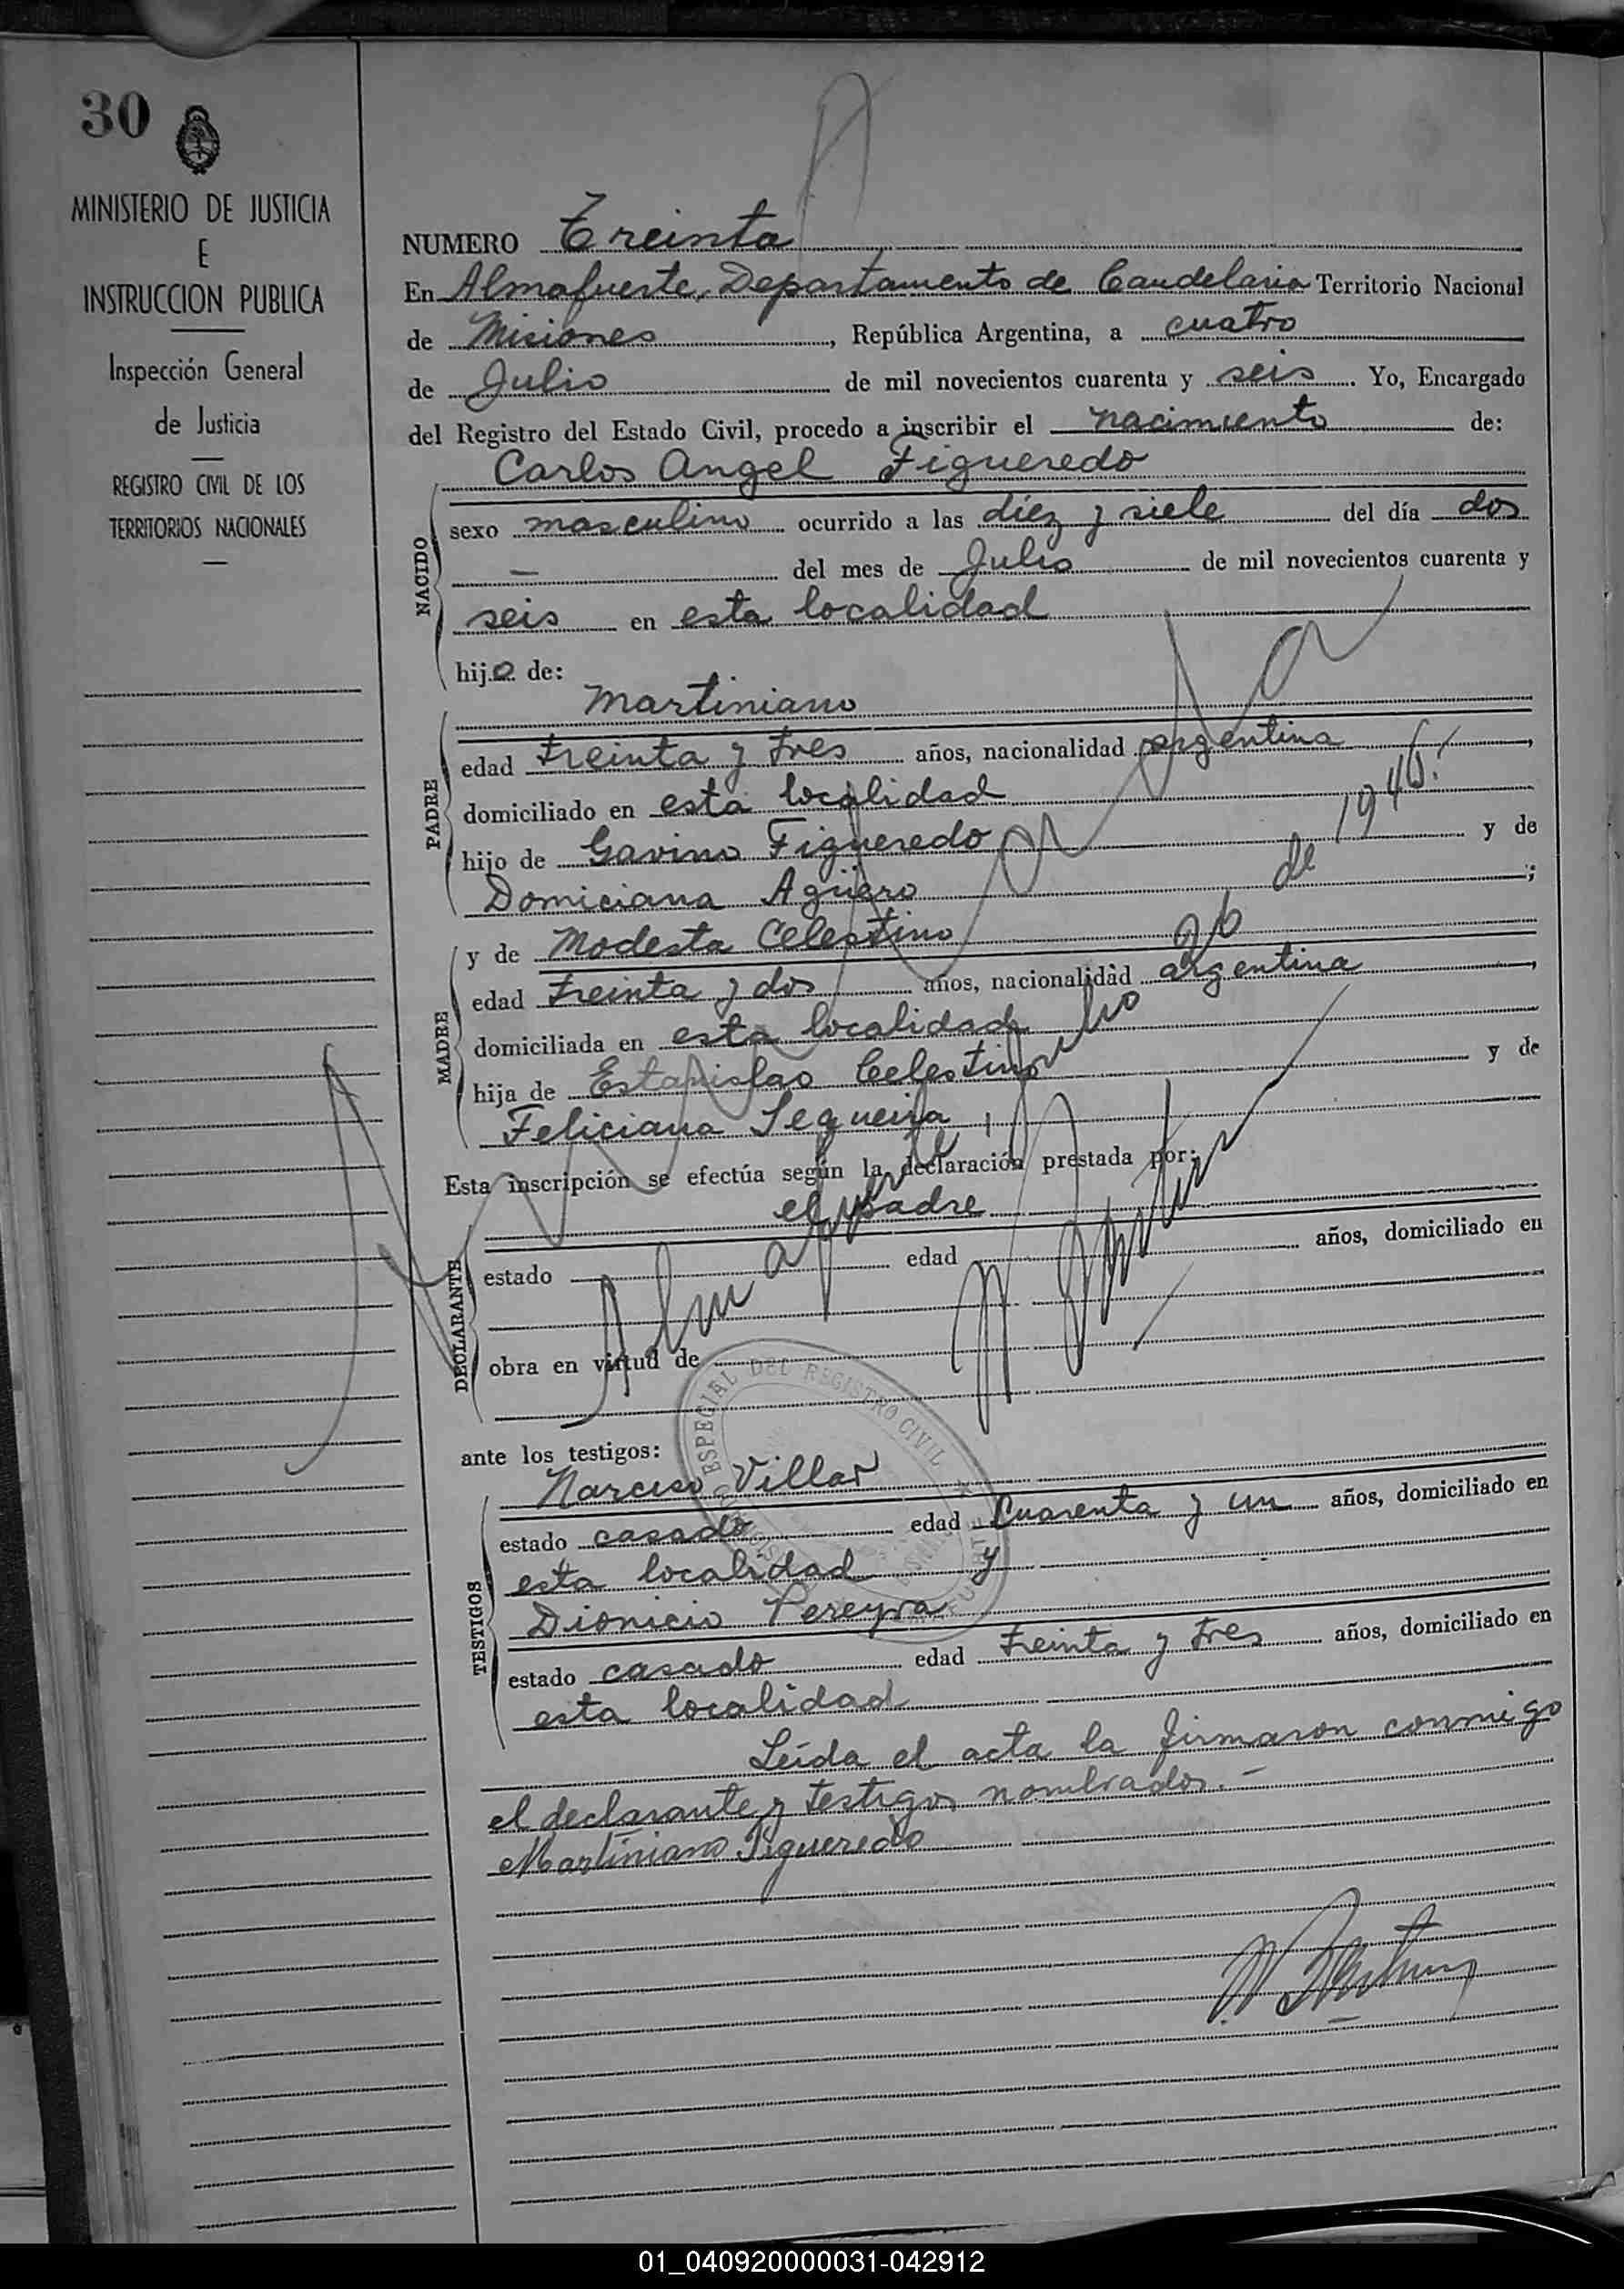 30
MINISTERIO DE JUSTICIA
E
INSTRUCCION PUBLICA
Inspección General
de Justicia
REGISTRO CIVIL DE LOS
TERRITORIOS NACIONALES
NUMERO Treinta
En Almafuerte, Departamento de Candelaria Territorio Nacional
de Misiones, República Argentina, a cuatro
de Julio de mil novecientos cuarenta y seis. Yo, Encargado
del Registro del Estado Civil, procedo a inscribir el nacimiento de:
Carlos Angel Figueredo
NACIDO
sexo masculino ocurrido a las diez y siete del día dos
— del mes de Julio de mil novecientos cuarenta y
seis en esta localidad
hijo de:
Martiniano
PADRE
edad treinta y tres años, nacionalidad argentina,
domiciliado en esta localidad
hijo de Gavino Figueredo y de
Domiciana Agüero;
y de Modesta Celestino
MADRE
edad treinta y dos años, nacionalidad argentina,
domiciliada en esta localidad
hija de Estanislao Celestino y de
Feliciana Sequeira
Esta inscripción se efectúa según la declaración prestada por:
el padre
DECLARANTE
estado edad años, domiciliado en
obra en virtud de
ANULADA
Almafuerte, Julio 26 de 1946.
ESPECIAL DEL REGISTRO CIVIL
ante los testigos:
Narciso Villar
TESTIGOS
estado casado edad Cuarenta y un años, domiciliado en
esta localidad y
Dionicio Pereyra
estado casado edad treinta y tres años, domiciliado en
esta localidad
Leída el acta la firmaron conmigo
el declarante y testigos nombrados.-
Martiniano Figueredo
01_040920000031-042912